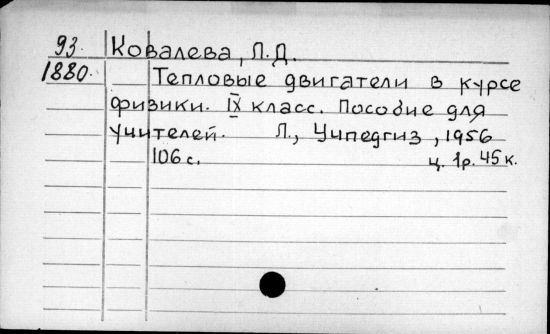 93. Ковалева, Л.Д.
1880. Тепловые двигатели в курсе
физики. IX класс. Пособие для
учителей. Л., Учпедгиз, 1956
106 с. ц. 1р. 45 к.